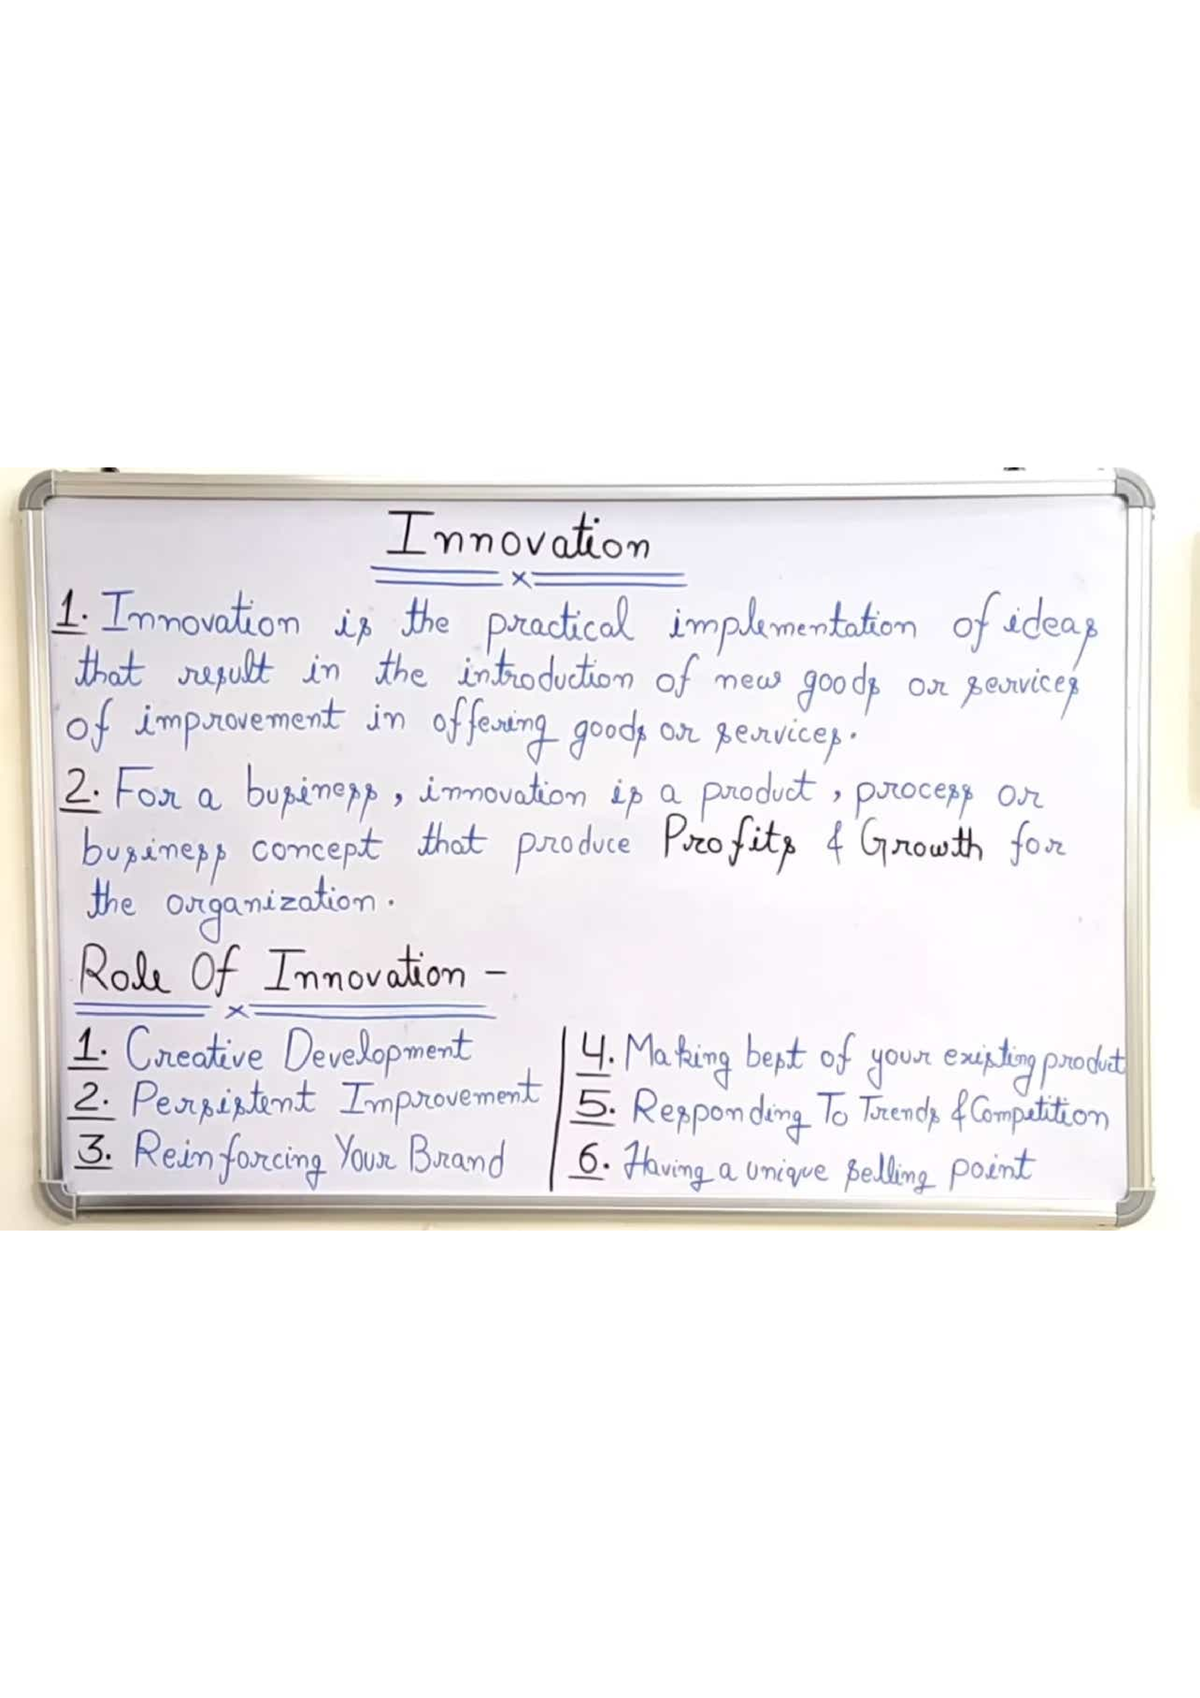 Innovation
1. Innovation is the practical implementation of ideas
that result in the introduction of new goods or services
of improvement in offering goods or services.
2. For a business, innovation is a product, process or
business concept that produce Profits & Growth for
the organization.
Role Of Innovation -
1. Creative Development
2. Persistent Improvement
3. Reinforcing Your Brand
4. Making best of your existing product
5. Responding To Trends & Competition
6. Having a unique selling point